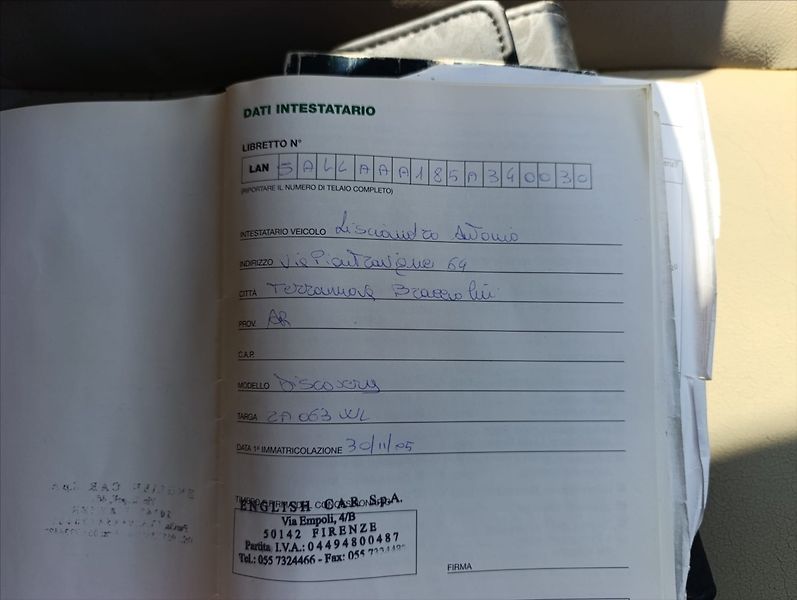 DATI INTESTATARIO
LIBRETTO N°
LAN SALLAAA185A340030
(RIPORTARE IL NUMERO DI TELAIO COMPLETO)
INTESTATARIO VEICOLO Antonio
INDIRIZZO Via Piantravigne 64
CITTÀ Terranova Bracciolini
PROV. AR
C.A.P.
MODELLO Discovery
TARGA ZA 063 WL
DATA 1ª IMMATRICOLAZIONE 30/11/05
TIMBRO E FIRMA DEL CONCESSIONARIO
ENGLISH CAR S.p.A.
Via Empoli, 4/B
50142 FIRENZE
Partita I.V.A.: 04494800487
Tel.: 055 7324466 - Fax: 055
FIRMA